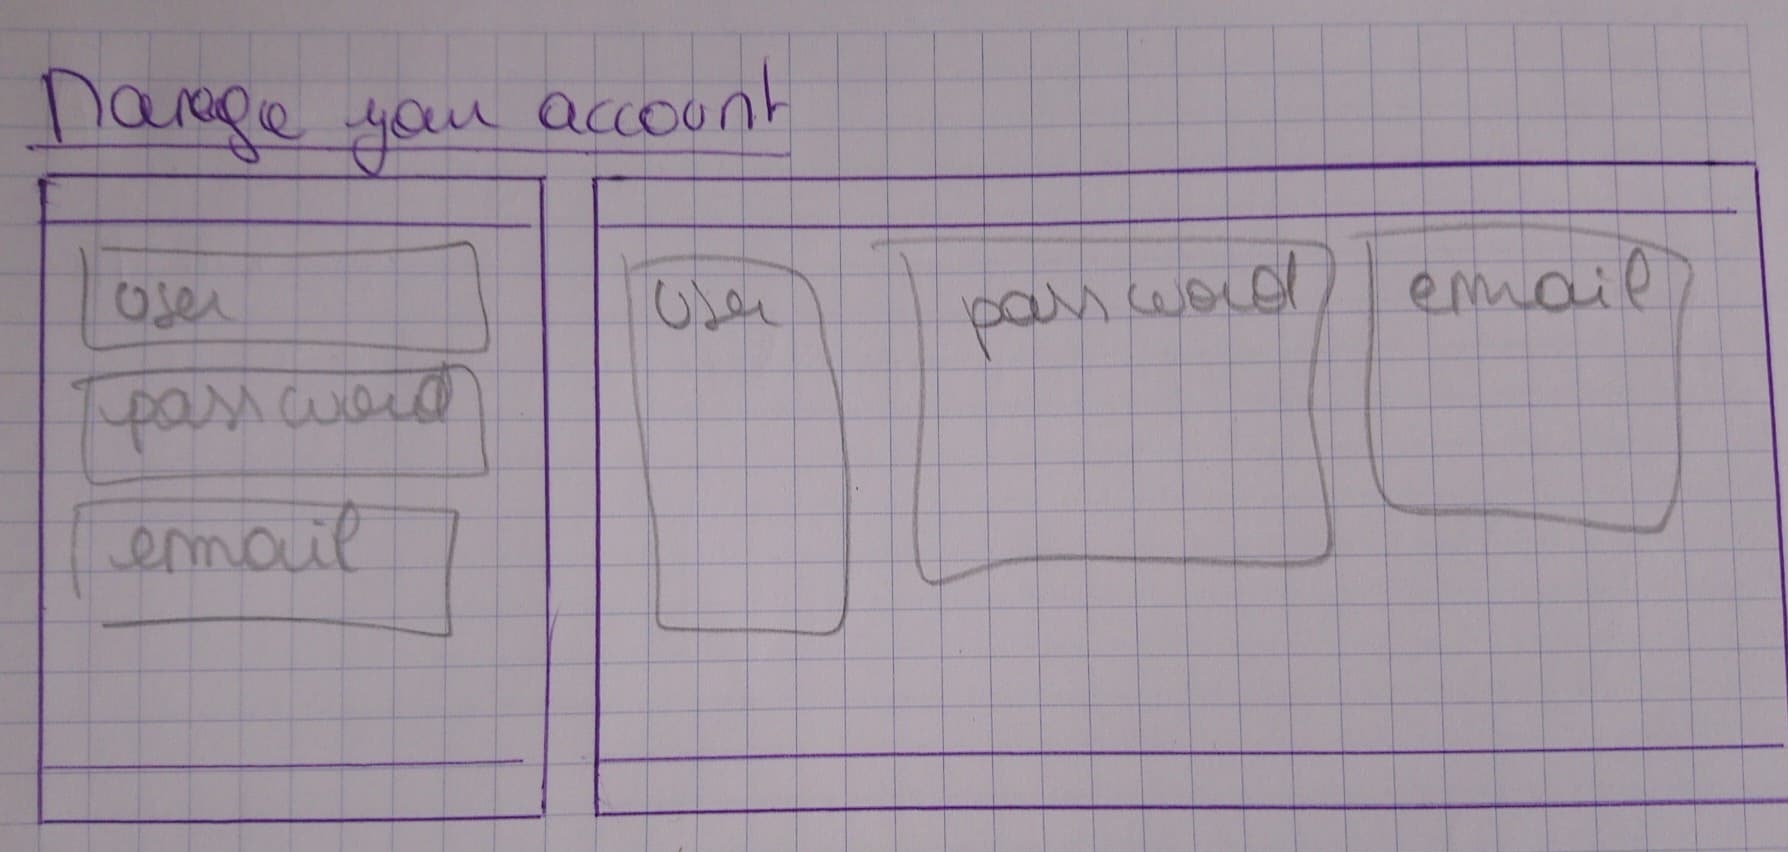 Manage your account
user
password
email
user
password
email